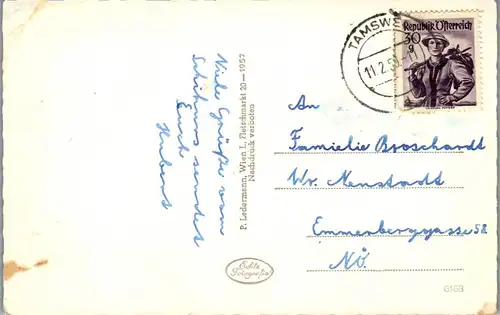 Viele Grüße vom
Schikurs sendet
Euch
Hubert
P. Ledermann, Wien I., Fleischmarkt 20 — 1957
Nachdruck verboten
Echte
Fotografie
TAMSWE
11.2.5
Republik Österreich
30
g
An
Familie Broschardt
Wr. Neustadt
Emmerberggasse 52
NÖ.
6168